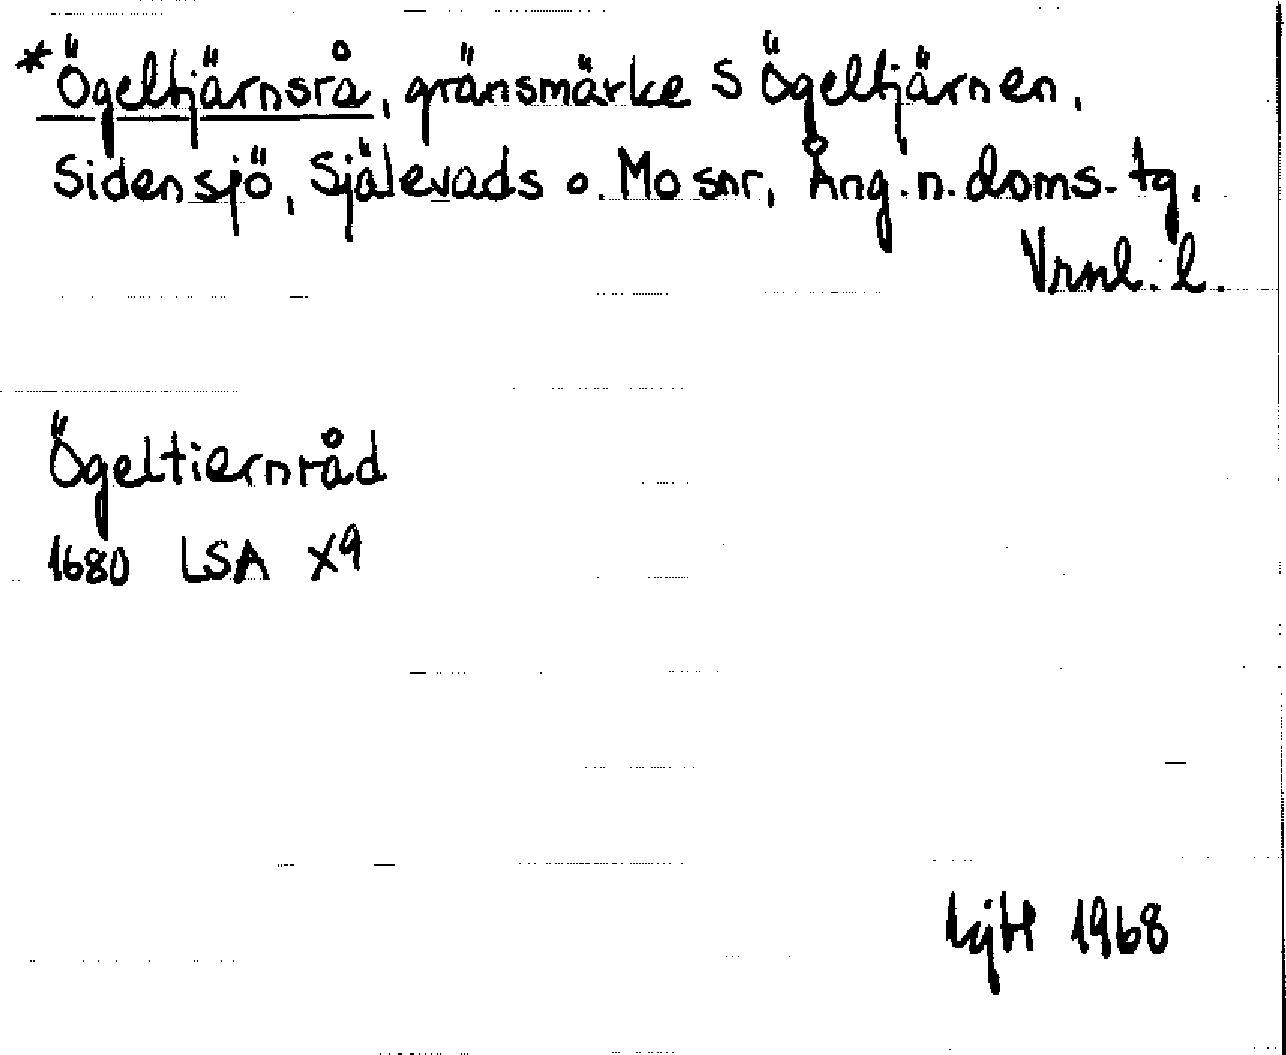 *Ögeltjärnsrå, gränsmärke S Ögeltjärnen,
Sidensjö, Själevads o. Mo snr, Ång. n. doms. tg,
Vrnl. l.
Ögeltiernråd
1680 LSA X9
1968